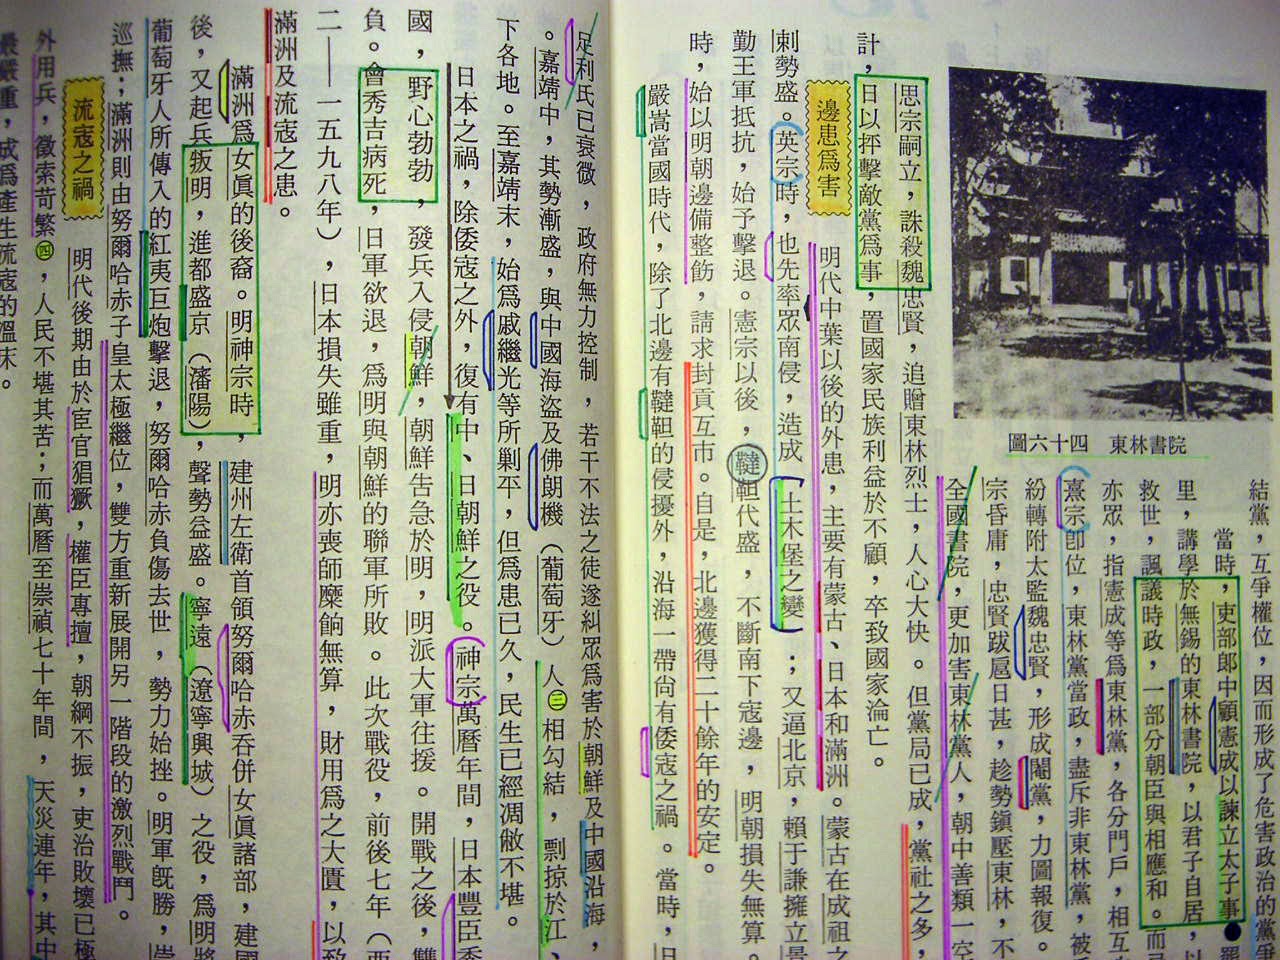 圖六十四　東林書院
結黨，互爭權位，因而形成了危害政治的黨爭
當時，吏部郎中顧憲成以諫立太子事，罷
里，講學於無錫的東林書院，以君子自居，以
救世，諷議時政，一部分朝臣與相應和。而忌
亦眾，指憲成等爲東林黨，各分門戶，相互
熹宗卽位，東林黨當政，盡斥非東林黨，被
紛轉附太監魏忠賢，形成閹黨，力圖報復。
宗昏庸，忠賢跋扈日甚，趁勢鎭壓東林，不
全國書院，更加害東林黨人，朝中善類一空
思宗嗣立，誅殺魏忠賢，追贈東林烈士，人心大快。但黨局已成，黨社之多，
計，日以抨擊敵黨爲事，置國家民族利益於不顧，卒致國家淪亡。
邊患爲害　明代中葉以後的外患，主要有蒙古、日本和滿洲。蒙古在成祖之
刺勢盛。英宗時，也先率眾南侵，造成「土木堡之變」；又逼北京，賴于謙擁立景
勤王軍抵抗，始予擊退。憲宗以後，韃靼代盛，不斷南下寇邊，明朝損失無算。
時，始以明朝邊備整飭，請求封貢互市。自是，北邊獲得二十餘年的安定。
嚴嵩當國時代，除了北邊有韃靼的侵擾外，沿海一帶尙有倭寇之禍。當時，日
足利氏已衰微，政府無力控制，若干不法之徒遂糾眾爲害於朝鮮及中國沿海，
。嘉靖中，其勢漸盛，與中國海盜及佛朗機（葡萄牙）人㊂相勾結，剽掠於江、
下各地。至嘉靖末，始爲戚繼光等所剿平，但爲患已久，民生已經凋敝不堪。
日本之禍，除倭寇之外，復有中、日朝鮮之役。神宗萬曆年間，日本豐臣秀
國，野心勃勃，發兵入侵朝鮮，朝鮮吿急於明，明派大軍往援。開戰之後，雙
負。會秀吉病死，日軍欲退，爲明與朝鮮的聯軍所敗。此次戰役，前後七年（西
二——一五九八年），日本損失雖重，明亦喪師糜餉無算，財用爲之大匱，以致
滿洲及流寇之患。
滿洲爲女眞的後裔。明神宗時，建州左衛首領努爾哈赤吞併女眞諸部，建國
後，又起兵叛明，進都盛京（瀋陽），聲勢益盛。寧遠（遼寧興城）之役，爲明將
葡萄牙人所傳入的紅夷巨炮擊退，努爾哈赤負傷去世，勢力始挫。明軍旣勝，崇
巡撫；滿洲則由努爾哈赤子皇太極繼位，雙方重新展開另一階段的激烈戰鬥。
流寇之禍　明代後期由於宦官猖獗，權臣專擅，朝綱不振，吏治敗壞已極
外用兵，徵索苛繁㊃，人民不堪其苦；而萬曆至崇禎七十年間，天災連年，其中
最嚴重，成爲產生流寇的溫床。